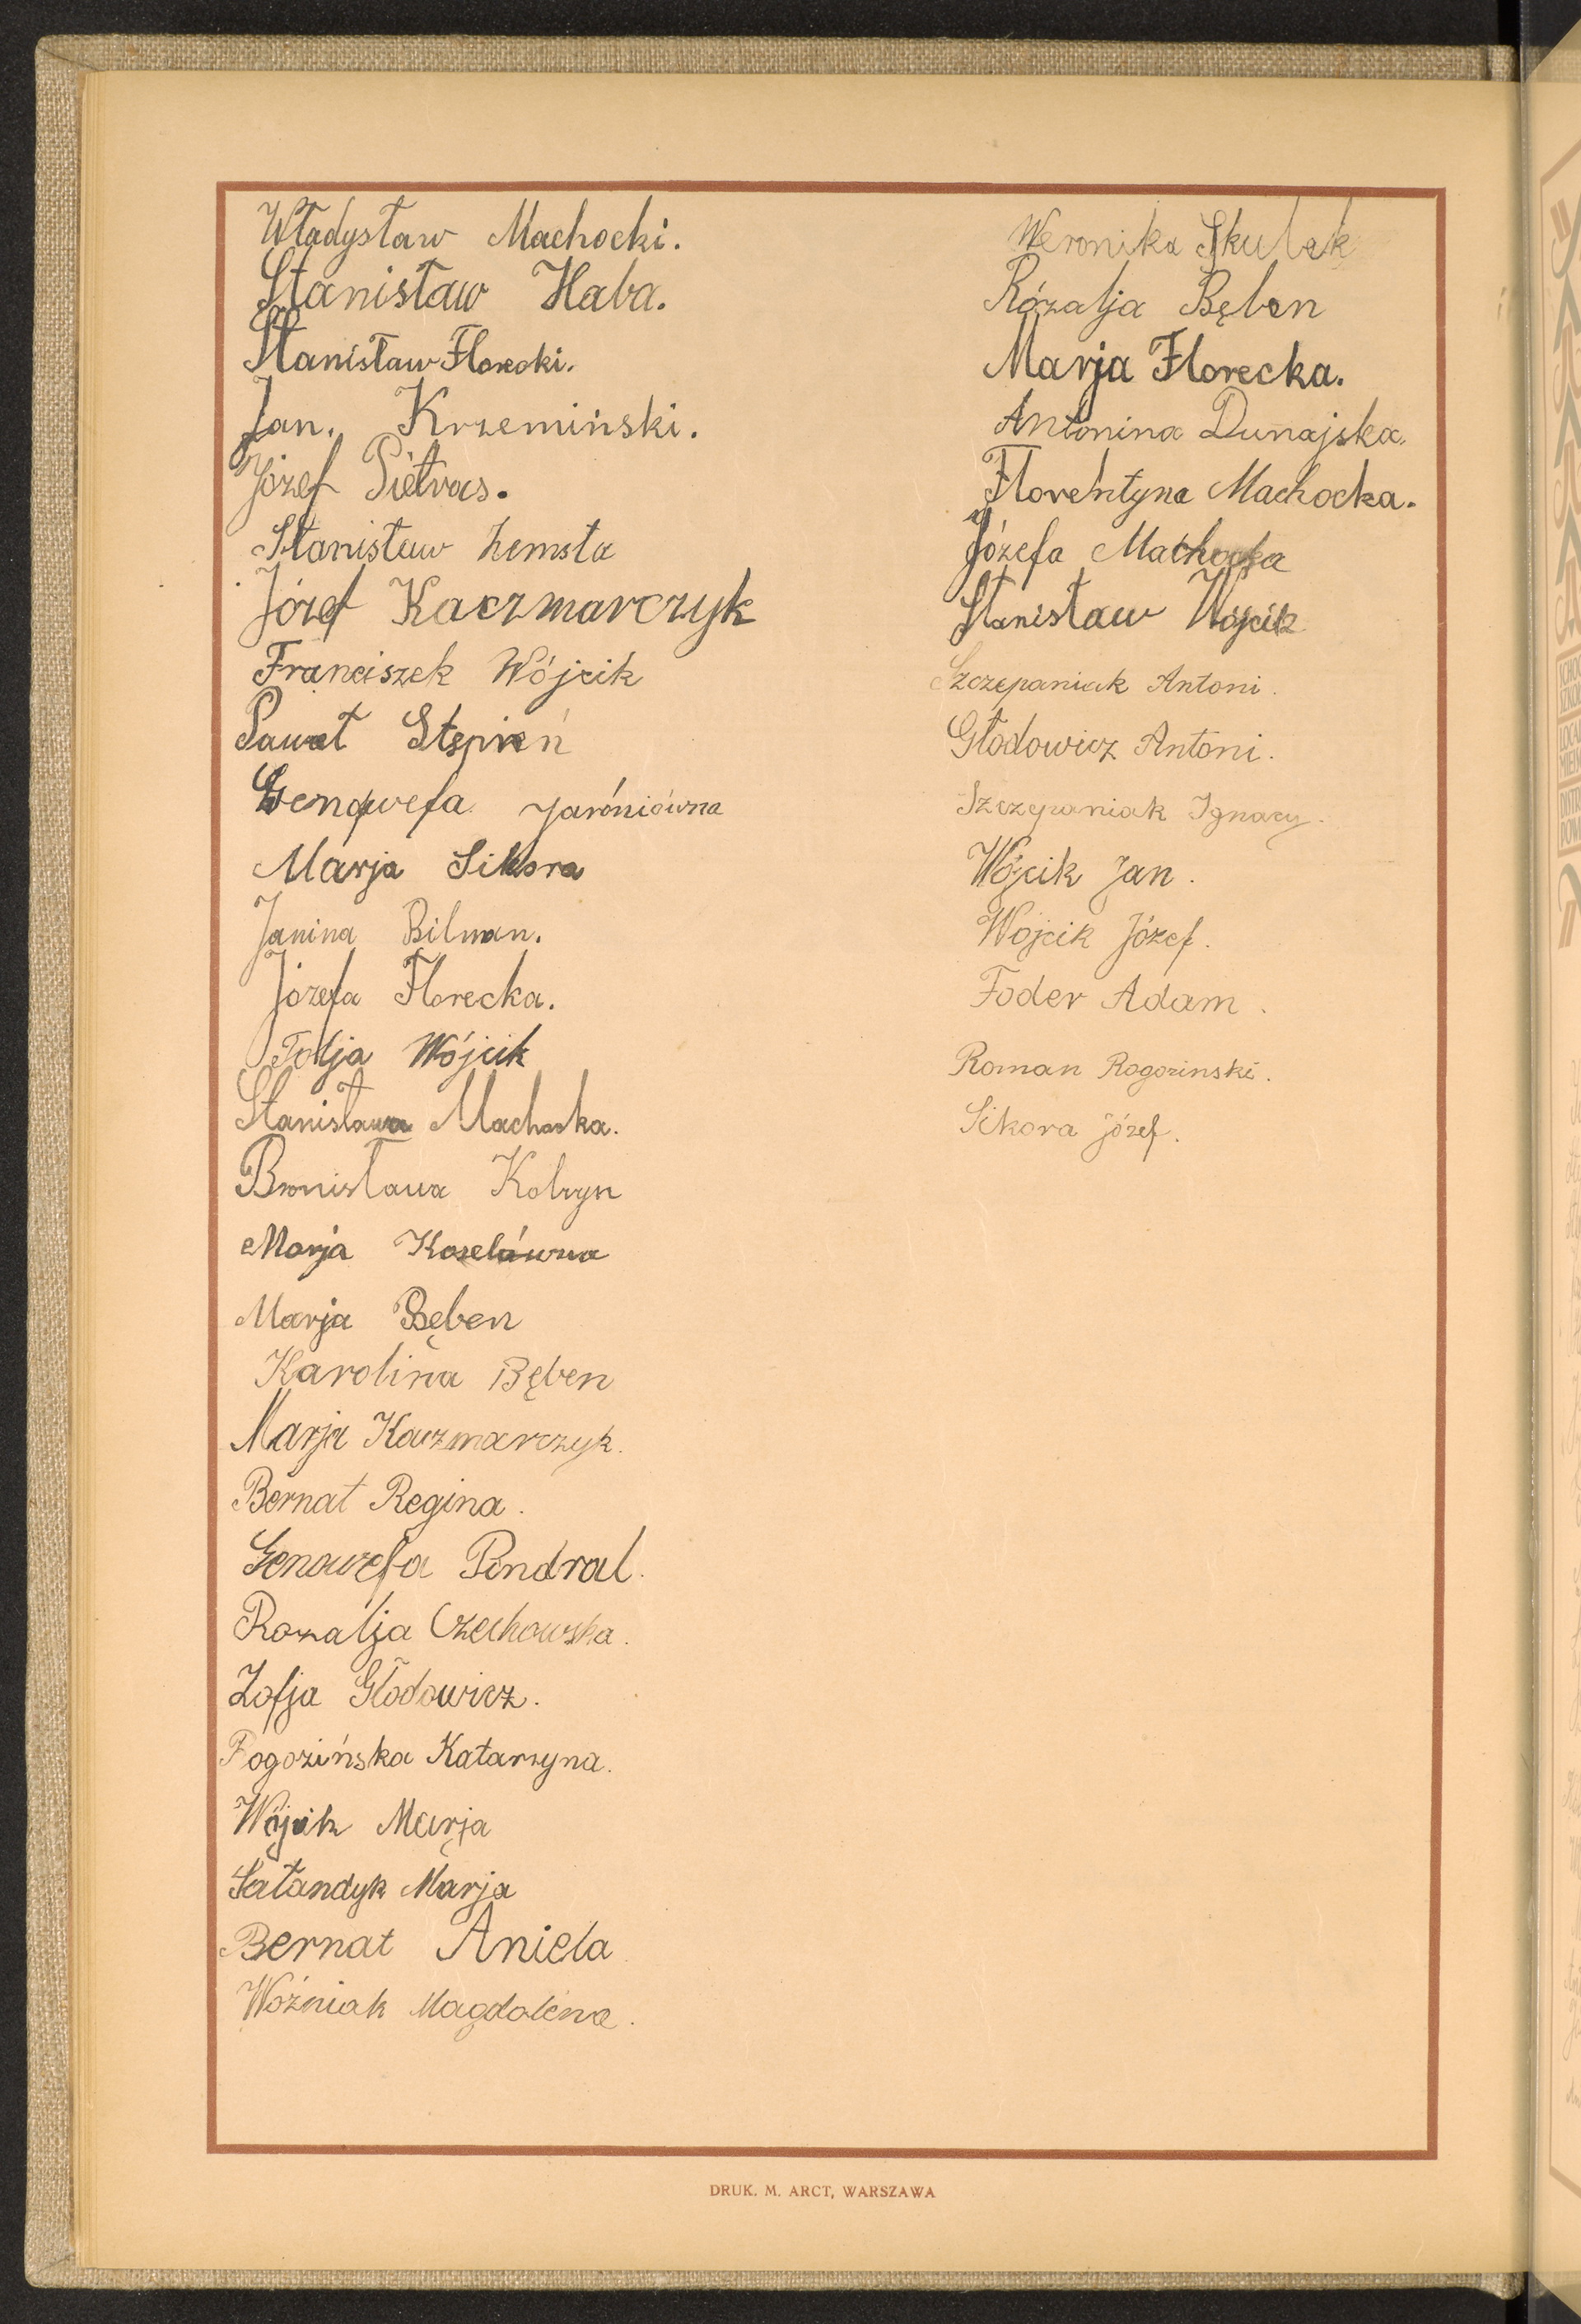 Władysław Machocki.
Stanisław Haba.
Stanisław Florecki.
Jan. Krzemiński.
Józef Pietras.
Stanisław Zemsta
Józef Kaczmarczyk
Franciszek Wójcik
Paweł Stępień
Genowefa Jaróniówna
Marja Sikora
Janina Bilman.
Józefa Florecka.
Zofja Wójcik
Stanisława Machocka.
Bronisława Kobryn
Marja Koselówna
Marja Bęben
Karolina Bęben
Marja Kaczmarczyk.
Bernat Regina.
Genowefa Pendral.
Rozalja Czechowska.
Zofja Głodowicz.
Rogozińska Katarzyna.
Wójcik Marja
Sałandyk Marja
Bernat Aniela
Woźniak Magdalena.
Weronika Skulak
Rózalja Bęben
Marja Florecka.
Antonina Dunajska.
Florentyna Machocka.
Józefa Machocka
Stanisław Wójcik
Szczepaniak Antoni.
Głodowicz Antoni.
Szczepaniak Ignacy.
Wójcik Jan.
Wójcik Józef.
Foder Adam.
Roman Rogozinski.
Sikora Józef.
DRUK. M. ARCT, WARSZAWA